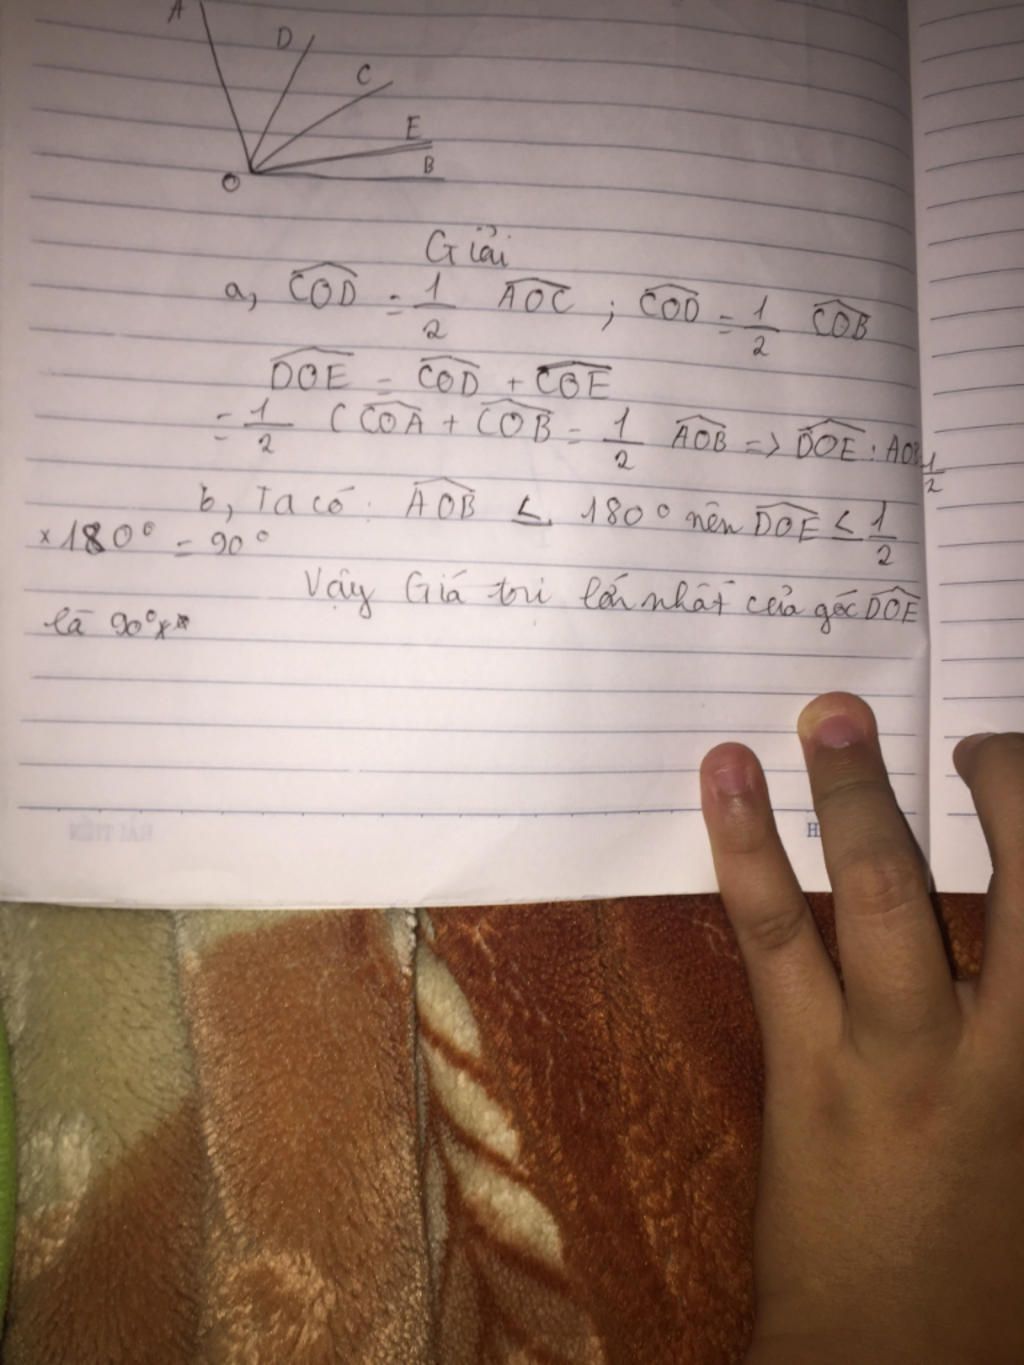 A
D
C
E
B
O
Giải
a, COD = 1/2 AOC ; COD = 1/2 COB
DOE = COD + COE
= 1/2 (COA + COB = 1/2 AOB => DOE : AOB 1/2
b, Ta có : AOB ≤ 180° nên DOE ≤ 1/2
× 180° = 90°
Vậy Giá trị lớn nhất của góc DOE
là 90°
HẢI TIẾN
H